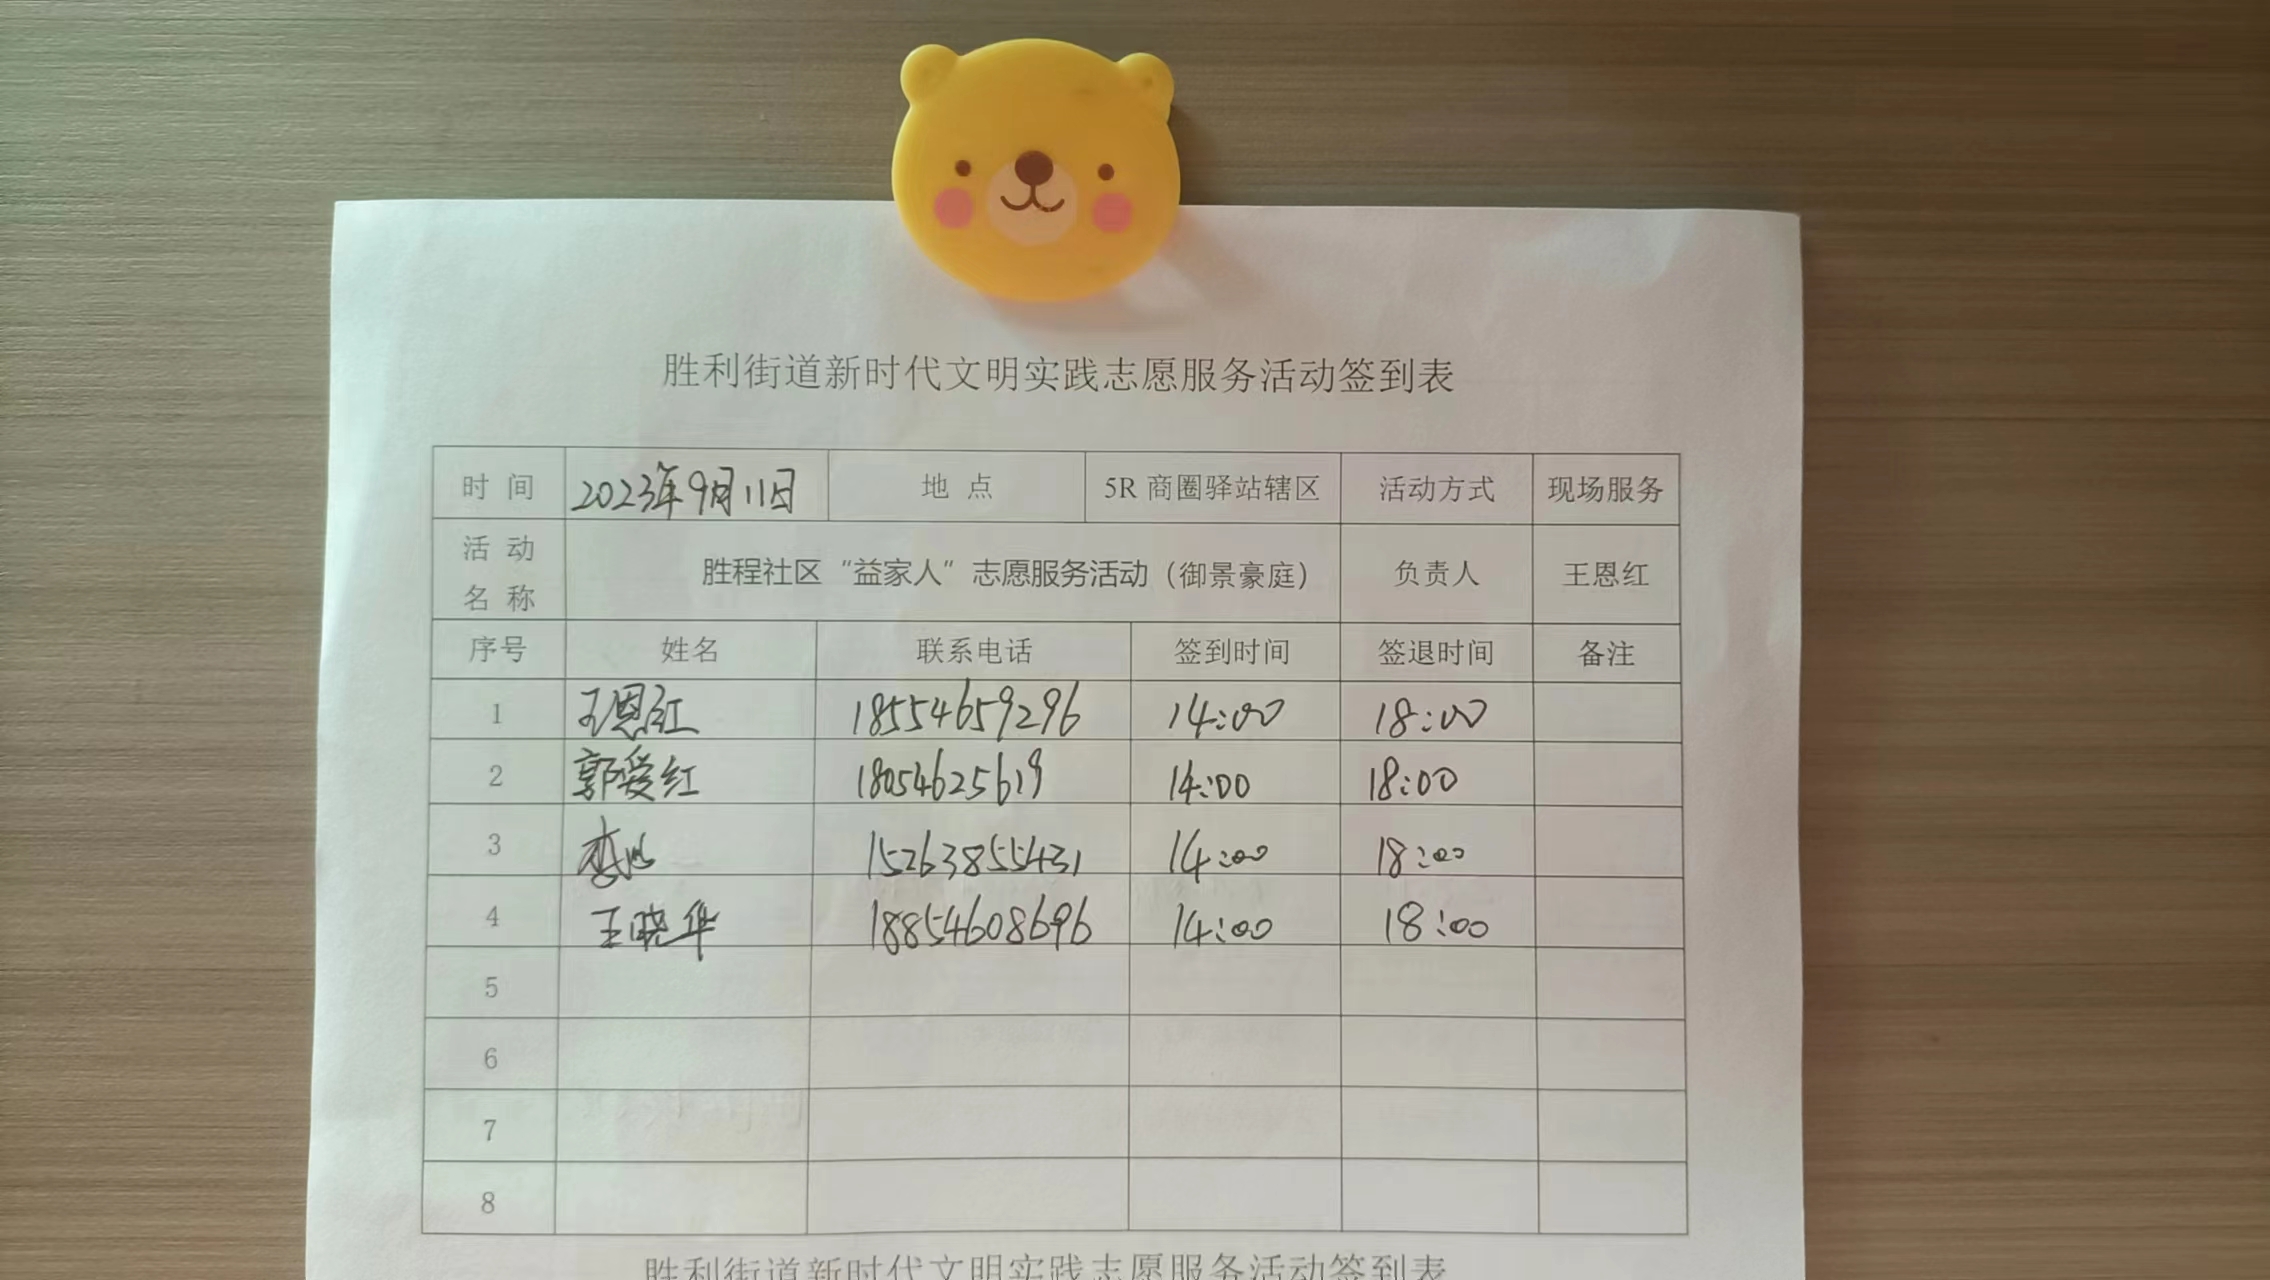 胜利街道新时代文明实践志愿服务活动签到表
时 间 2023年9月11日 地 点 5R 商圈驿站辖区 活动方式 现场服务
活 动
名 称 胜程社区“益家人”志愿服务活动（御景豪庭） 负责人 王恩红
序号 姓名 联系电话 签到时间 签退时间 备注
1 王恩红 18554659296 14:00 18:00
2 郭爱红 18054625619 14:00 18:00
3 15263855431 14:00 18:00
4 王晓华 18854608696 14:00 18:00
5
6
7
8
胜利街道新时代文明实践志愿服务活动签到表